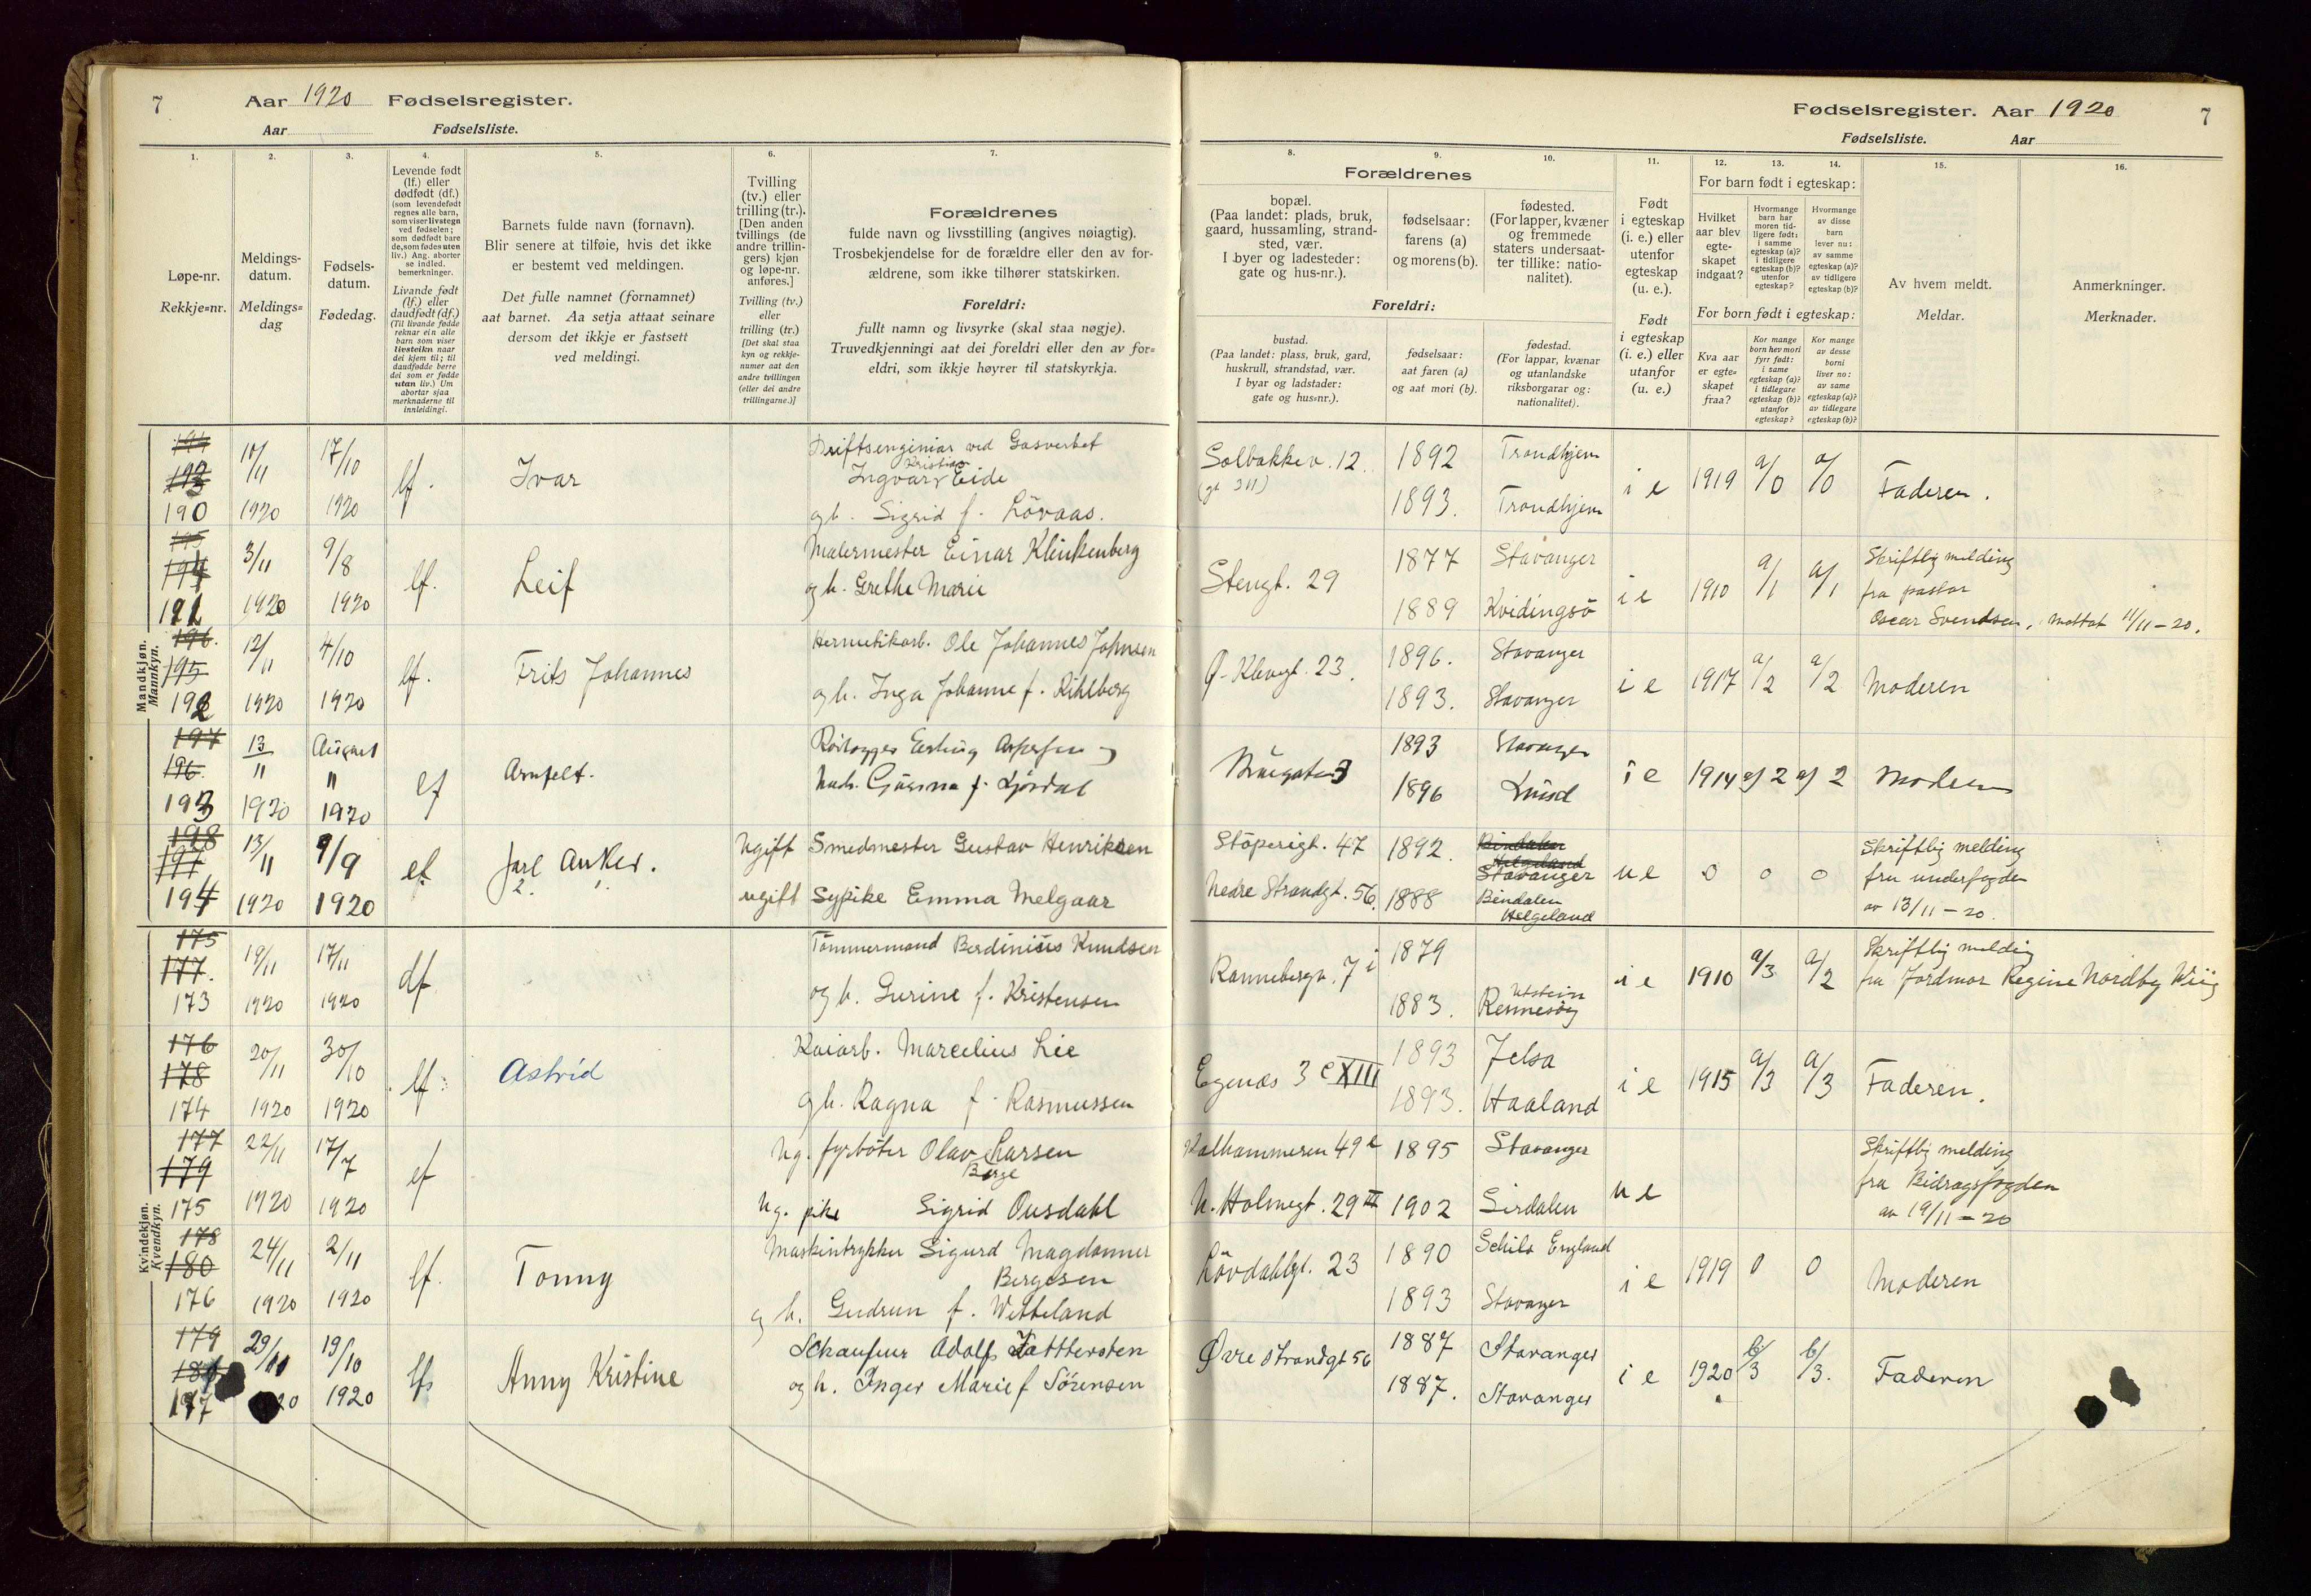 7 Aar 1920 Fødselsregister.
Aar Fødselsliste.
Fødselsregister. Aar 1920 7
Fødselsliste. Aar
1. 2. 3. 4. 5. 6. 7.
Løpe-nr.
Rekkje=nr.
Meldings-
datum.
Meldings=
dag
Fødsels-
datum.
Fødedag.
Levende født
(lf.) eller
dødfødt (df.)
(som levendefødt
regnes alle barn,
som viser livstegn
ved fødselen;
som dødfødt bare
de, som fødes uten
liv.) Ang. aborter
se indled.
bemerkninger.
Livande født
(lf.) eller
daudfødt (df.)
(Til livande fødde
reknar ein alle
barn som viser
livsteikn naar
dei kjem til; til
daudfødde berre
dei som er fødde
utan liv.) Um
abortar sjaa
merknaderne til
innleidingi.
Barnets fulde navn (fornavn).
Blir senere at tilføie, hvis det ikke
er bestemt ved meldingen.
Det fulle namnet (fornamnet)
aat barnet. Aa setja attaat seinare
dersom det ikkje er fastsett
ved meldingi.
Tvilling
(tv.) eller
trilling (tr.).
[Den anden
tvillings (de
andre trillin-
gers) kjøn
og løpe-nr.
anføres.]
Tvilling (tv.)
eller
trilling (tr.)
[Det skal staa
kyn og rekkje-
numer aat den
andre tvillingen
(eller dei andre
trillingarne.)]
Forældrenes
fulde navn og livsstilling (angives nøiagtig).
Trosbekjendelse for de forældre eller den av for-
ældrene, som ikke tilhører statskirken.
Foreldri:
fullt namn og livsyrke (skal staa nøgje).
Truvedkjenningi aat dei foreldri eller den av for=
eldri, som ikkje høyrer til statskyrkja.
8. 9. 10. 11. 12. 13. 14. 15. 16.
Forældrenes
bopæl.
(Paa landet: plads, bruk,
gaard, hussamling, strand-
sted, vær.
I byer og ladesteder:
gate og hus-nr.).
fødselsaar:
farens (a)
og morens (b).
fødested.
(For lapper, kvæner
og fremmede
staters undersaat-
ter tillike: natio-
nalitet).
Foreldri:
bustad.
(Paa landet: plass, bruk, gard,
huskrull, strandstad, vær.
I byar og ladstader:
gate og hus=nr.).
fødselsaar:
aat faren (a)
og aat mori (b).
fødestad.
(For lappar, kvænar
og utanlandske
riksborgarar og:
nationalitet).
Født
i egteskap
(i. e.) eller
utenfor
egteskap
(u. e.).
Født
i egteskap
(i. e.) eller
utanfor
(u. e.)
For barn født i egteskap:
Hvilket
aar blev
egte-
skapet
indgaat?
Hvormange
barn har
moren tid-
ligere født:
i samme
egteskap (a)?
i tidligere
egteskap (b)?
utenfor
egteskap?
Hvormange
av disse
barn
lever nu:
av samme
egteskap (a)?
av tidligere
egteskap (b)?
For born født i egteskap:
Kva aar
er egte-
skapet
fraa?
Kor mange
born hev mori
fyrr født:
i same
egteskap (a)?
i tidlegare
egteskap (b)?
utanfor
egteskap?
Kor mange
av desse
borni
liver no:
av same
egteskap (a)?
av tidlegare
egteskap (b)?
Av hvem meldt.
Meldar.
Anmerkninger.
Merknader.
Mandkjøn.
Mannkyn.
193
190 10/11 1920 17/10 1920 lf. Ivar
Driftsenginiør ved Gasverket
Ingvar Kristian Eide
og h. Sigrid f. Lövaas.
Solbakkev. 12. 1892 Trondhjem
1893. Trondhjem
i e 1919 a/0 a/0 Faderen.
195
194
191 3/11 1920 9/8 1920 lf. Leif
Malermester Einar Klinkenberg
og h. Grethe Marie
Stengt. 29 1877 Stavanger
1889 Kvidingsö
i e 1910 a/1 a/1 Skriftlig melding
fra pastor
Oscar Svendsen, mottat 11/11-20.
196.
195
192 12/11 1920 4/10 1920 lf. Frits Johannes
Hermetikarb. Ole Johannes Johnsen
og h. Inga Johanne f. Kihlberg
Ø. Klevgt. 23. 1896. Stavanger
1893. Stavanger
i e 1917 a/2 a/2 Moderen
197
196.
193 13/11 1920 August 11 1920 lf Arnfelt.
1893 Stavanger
1896
i e 1914 a/2 a/2 Moderen
198
197
194 13/11 1920 9/9 1920 lf. Jarl Anker.
2. 1.
Ugift Smedmester Gustav Henriksen
ugift Sypike Emma Melgaar
Stöperigt. 47 1892. Bindalen
Helgeland
Stavanger
Nedre Strandgt. 56. 1888 Bindalen
Helgeland
u e 0 0 0 Skriftlig melding
fra underfogden
av 13/11-20.
Kvindekjøn.
Kvendkyn.
175
177.
173 19/11 1920 17/11 1920 df
Tömmermand Berdinius Knudsen
og h. Gurine f. Kristensen
Rannebergv. 7 i 1879
1883. Utstein
Rennesöy
i e 1910 a/3 a/2 Skriftlig melding
fra Jordmor Regine Nordby Kiig
176
178
174 20/11 1920 30/10 1920 lf. Astrid
Kaiarb. Marcelius Lie
og h. Ragna f. Rasmussen
Egenæs 3 e XIII 1893 Jelsa
1893. Haaland
i e 1915 a/3 a/3 Faderen.
177
179
175 22/11 1920 17/7 1920 lf
Ug. fyrböter Olav Larsen
Berge
Ug. pike Sigrid Ousdahl
Kalhammeren 49 e 1895 Stavanger
N. Holmegt. 29 II 1902 Sirdalen
u e Skriftlig melding
fra Bidragsfogden
av 19/11-20
178
180
176 24/11 1920 2/11 1920 lf. Tonny
Maskintrykker Sigurd Magdonner
Bergesen
og h. Gudrun f. Wetteland
Lövdahlsgt. 23 1890 Schils England
1893 Stavanger
i e 1919 0 0 Moderen
179
181
177 29/11 1920 19/10 1920 lf. Anny Kristine
Schauffeur Adolf
og h. Inger Marie f Sörensen
Øvre Strandgt 56 1887 Stavanger
1887. Stavanger
i e 1920 b/3 b/3. Faderen